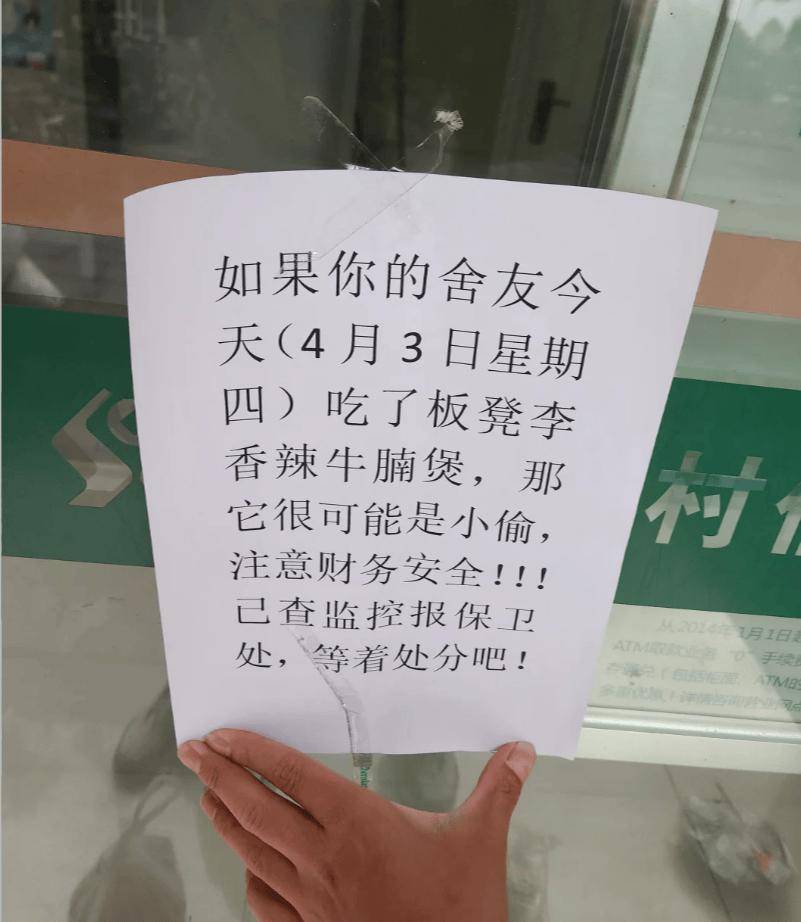 如果你的舍友今
天(4月3日星期
四)吃了板凳李
香辣牛腩煲，那
它很可能是小偷，
注意财务安全!!!
已查监控报保卫
处，等着处分吧!
村
从2014年1月1日起
ATM取款业务“0”手续费
多重优惠!详情咨询营业网点